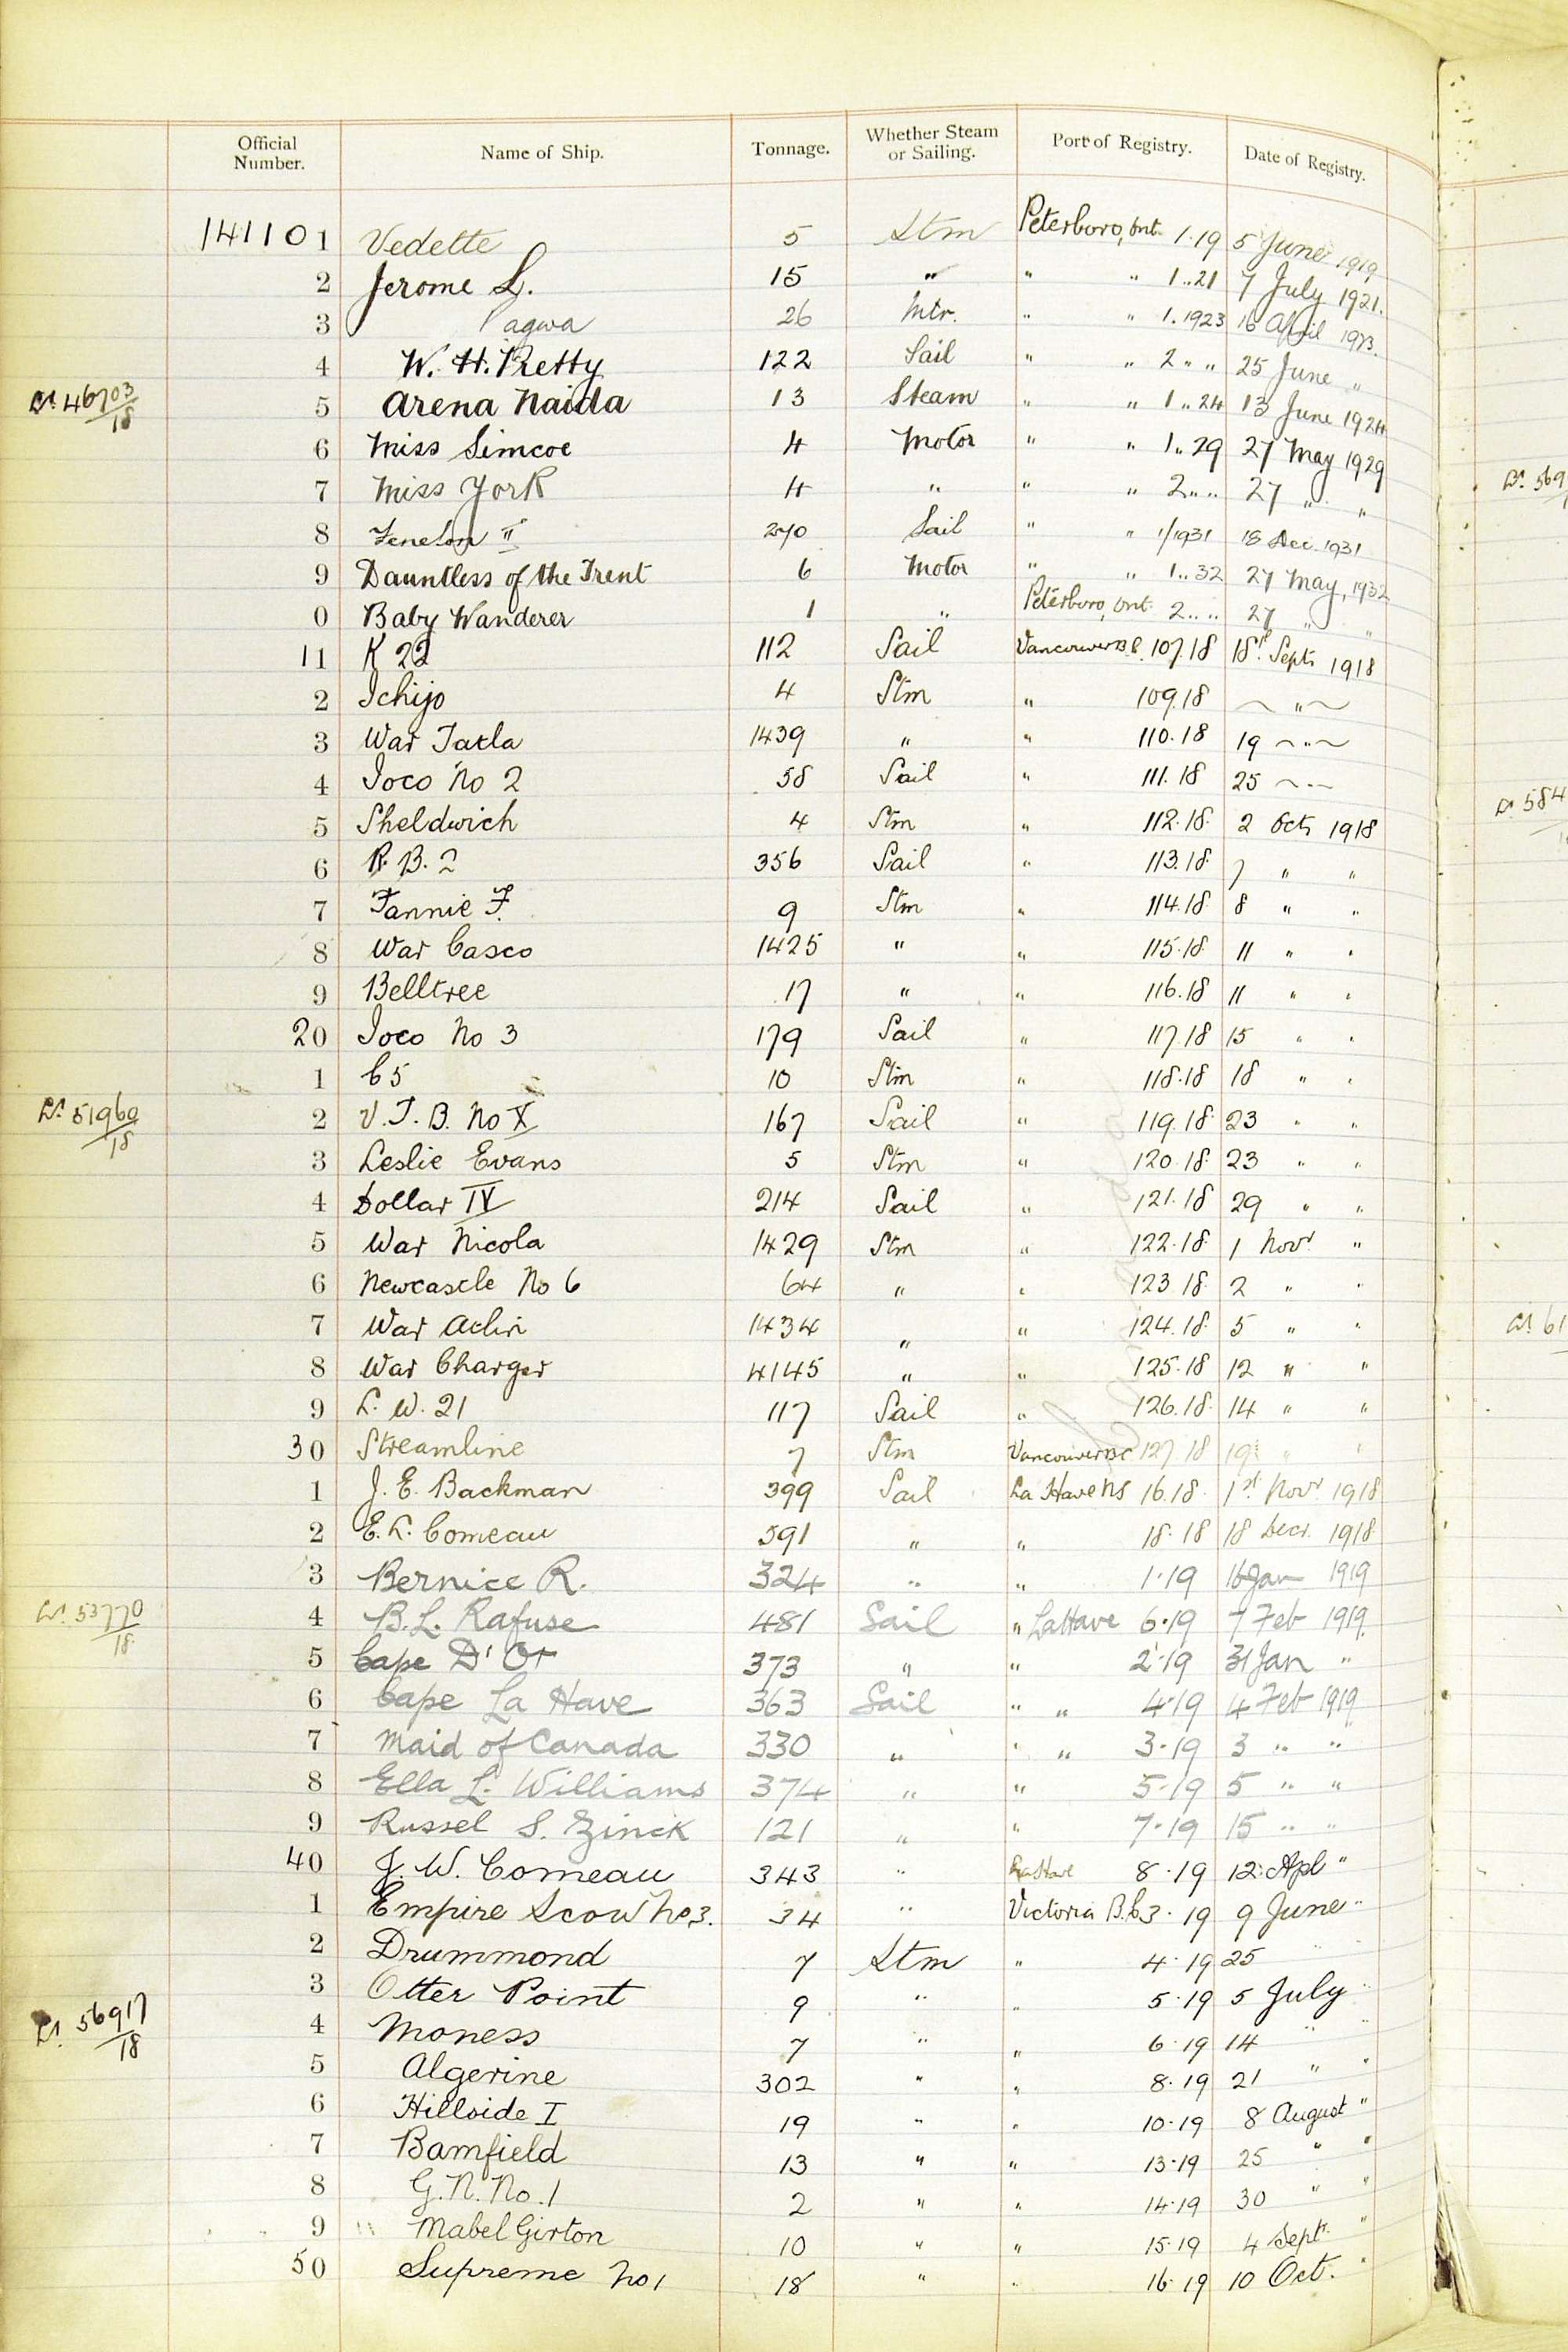 Official Number. Name of Ship. Tonnage. Whether Steam or Sailing. Port of Registry. Date of Registry.
141101 Vedette 5 Stm Peterboro, Ont. 1.19 5 June 1919
2 Jerome L. 15 " " " 1..21 7 July 1921.
3 Pagwa 26 Mtr. " " 1.1923 16 April 1923.
4 W. H. Pretty 122 Sail " " 2 " " 25 June "
Lr. 46703/18 5 Arena Naida 13 Steam " " 1..24 13 June 1924
6 Miss Simcoe 4 Motor " " 1..29 27 May 1929
7 Miss York 4 " " " 2 " " 27 " "
8 Fenelon II 270 Sail " " 1/1931 18 Dec. 1931
9 Dauntless of the Trent 6 Motor " " 1..32 27 May, 1932
0 Baby Wanderer 1 " Peterboro, Ont. 2 " " 27 " "
11 K 22 112 Sail Vancouver B.C. 107.18 18th Sept 1918
2 Ichijo 4 Stm " 109.18 "
3 War Tatla 1439 " " 110.18 19 "
4 Ioco No 2 58 Sail " 111.18 25 "
5 Sheldwich 4 Stm " 112.18. 2 Oct 1918
6 P. B. 2 356 Sail " 113.18. 7 " "
7 Fannie F. 9 Stm " 114.18 8 " "
8 War Casco 1425 " " 115.18 11 " "
9 Belltree 17 " " 116.18 11 " "
20 Ioco No 3 179 Sail " 117.18 15 " "
1 C 5 10 Stm " 118.18 18 " "
Lr. 51960/18 2 V. T. B. No X 167 Sail " 119.18. 23 " "
3 Leslie Evans 5 Stm " 120.18. 23 " "
4 Dollar IV 214 Sail " 121.18 29 " "
5 War Nicola 1429 Stm " 122.18. 1 Novr "
6 Newcastle No 6 64 " " 123.18. 2 " "
7 War Atlin 1434 " " 124.18. 5 " "
8 War Charger 4145 " " 125.18 12 " "
9 L. W. 21 117 Sail " 126.18. 14 " "
30 Streamline 7 Stm Vancouver BC 127.18 19 " "
1 J. E. Backman 399 Sail La Have NS 16.18. 1st Novr 1918
2 E. L. Comeau 391 " " 18.18 18 Decr. 1918
3 Bernice R. 324 " " 1.19 16 Jan 1919
Lr. 53770/18. 4 B. L. Rafuse 481 Sail " LaHave 6.19 7 Feb 1919.
5 Cape D'Or 373 " " 2.19 31 Jan "
6 Cape La Have 363 Sail " " 4.19 4 Feb 1919
7 Maid of Canada 330 " " " 3.19 3 " "
8 Ella L. Williams 374 " " 5.19 5 " "
9 Russel S. Zinck 121 " " 7.19 15 " "
40 J. W. Comeau 343 " LaHave 8.19 12 Apl "
1 Empire Scow No 3. 34 " Victoria B.C. 3.19 9 June "
2 Drummond 7 Stm " 4.19 25 "
3 Otter Point 9 " " 5.19 5 July "
Lr. 56917/18 4 Moness 7 " " 6.19 14 " "
5 Algerine 302 " " 8.19 21 " "
6 Hillside I 19 " " 10.19 8 August "
7 Bamfield 13 " " 13.19 25 " "
8 G. N. No. 1 2 " " 14.19 30 " "
9 Mabel Girton 10 " " 15.19 4 Sept. "
50 Supreme No 1 18 " " 16.19 10 Oct. "
Lr. 569
Lr. 584
Lr. 61